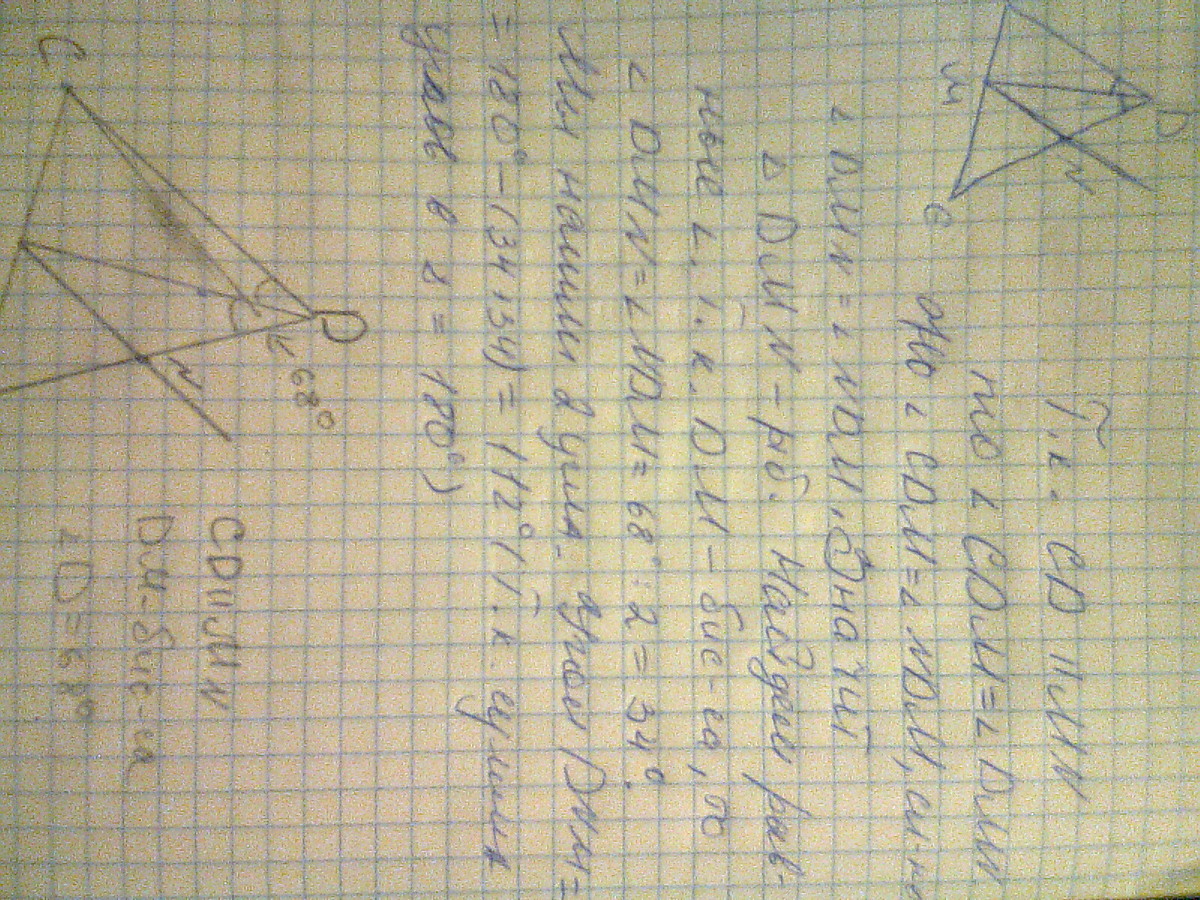 D
M
N
e
Т.к. CD ІІ MN
то ∠ CDM = ∠ DMN
∠ CDM = ∠ NDM,
∠ DMN = ∠ NDM, Значит
△ DMN - рб. Найдем рав-
ные ∠, т.к. DM - бис-са, то
∠ DMN = ∠ NDM = 68° : 2 = 34°.
Мы нашли 2 угла. Угол DNM =
= 180° - (34+34) = 112° (т.к. сумма
углов в △ = 180°)
D
K
68°
N
C
CD ІІ MN
DM - бис-са
∠D = 68°